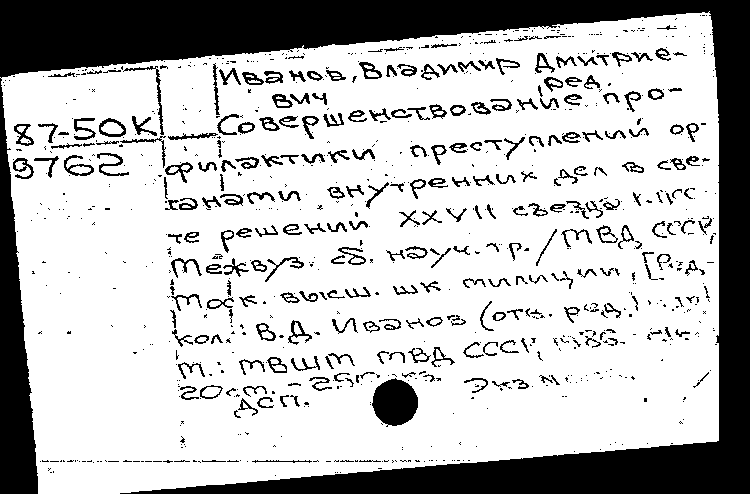 Иванов, Владимир Дмитрие-
вич ред.
87-50К Совершенствование про-
9762 филактики преступлений ор-
ганами внутренних дел в све-
те решений XXVII съезда КПСС
Межвуз. сб. науч. тр. / МВД СССР,
Моск. высш. шк. милиции, [Ред-
кол.: В.Д. Иванов (отв. ред.)
М.: МВШМ МВД СССР, 1986.
20 см. - экз.
ДСП. Экз №